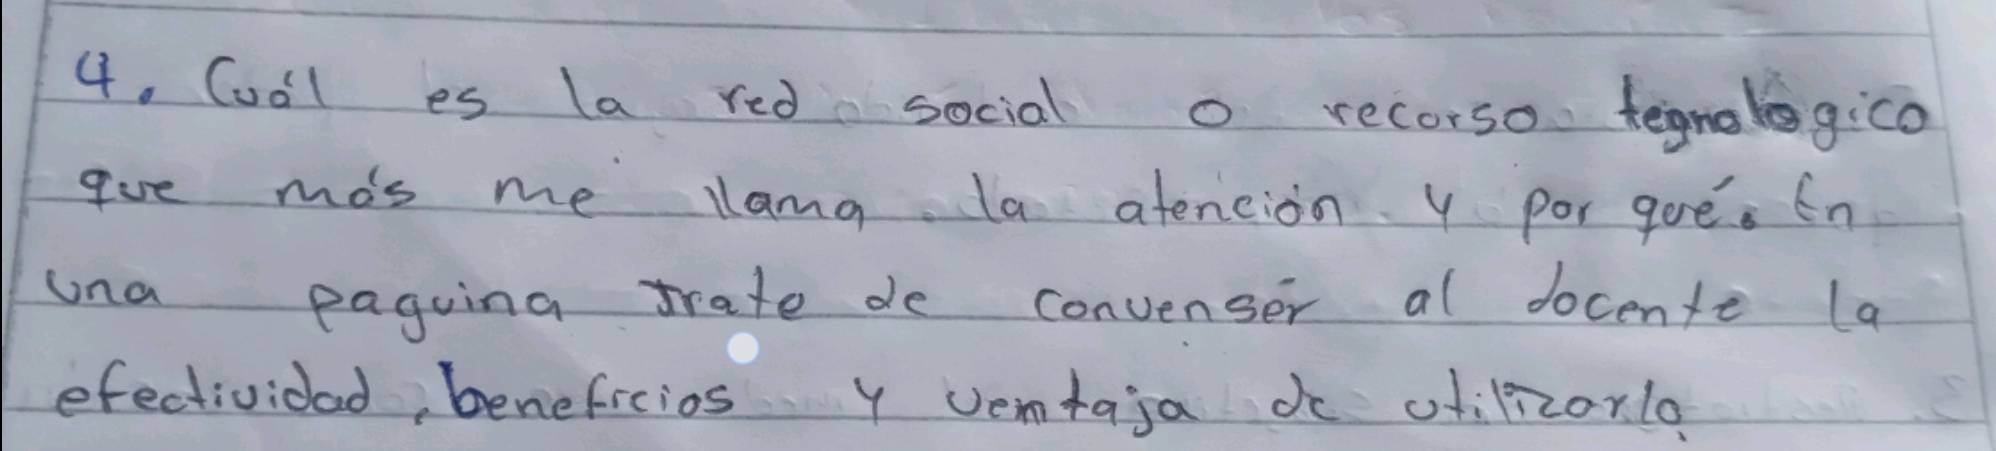 4. Cuál es la red social o recurso tegnologico
que más me llama la atención y por qué. En
una paguina trate de convenser al docente la
efectividad, beneficios y ventaja de utilizarlo.